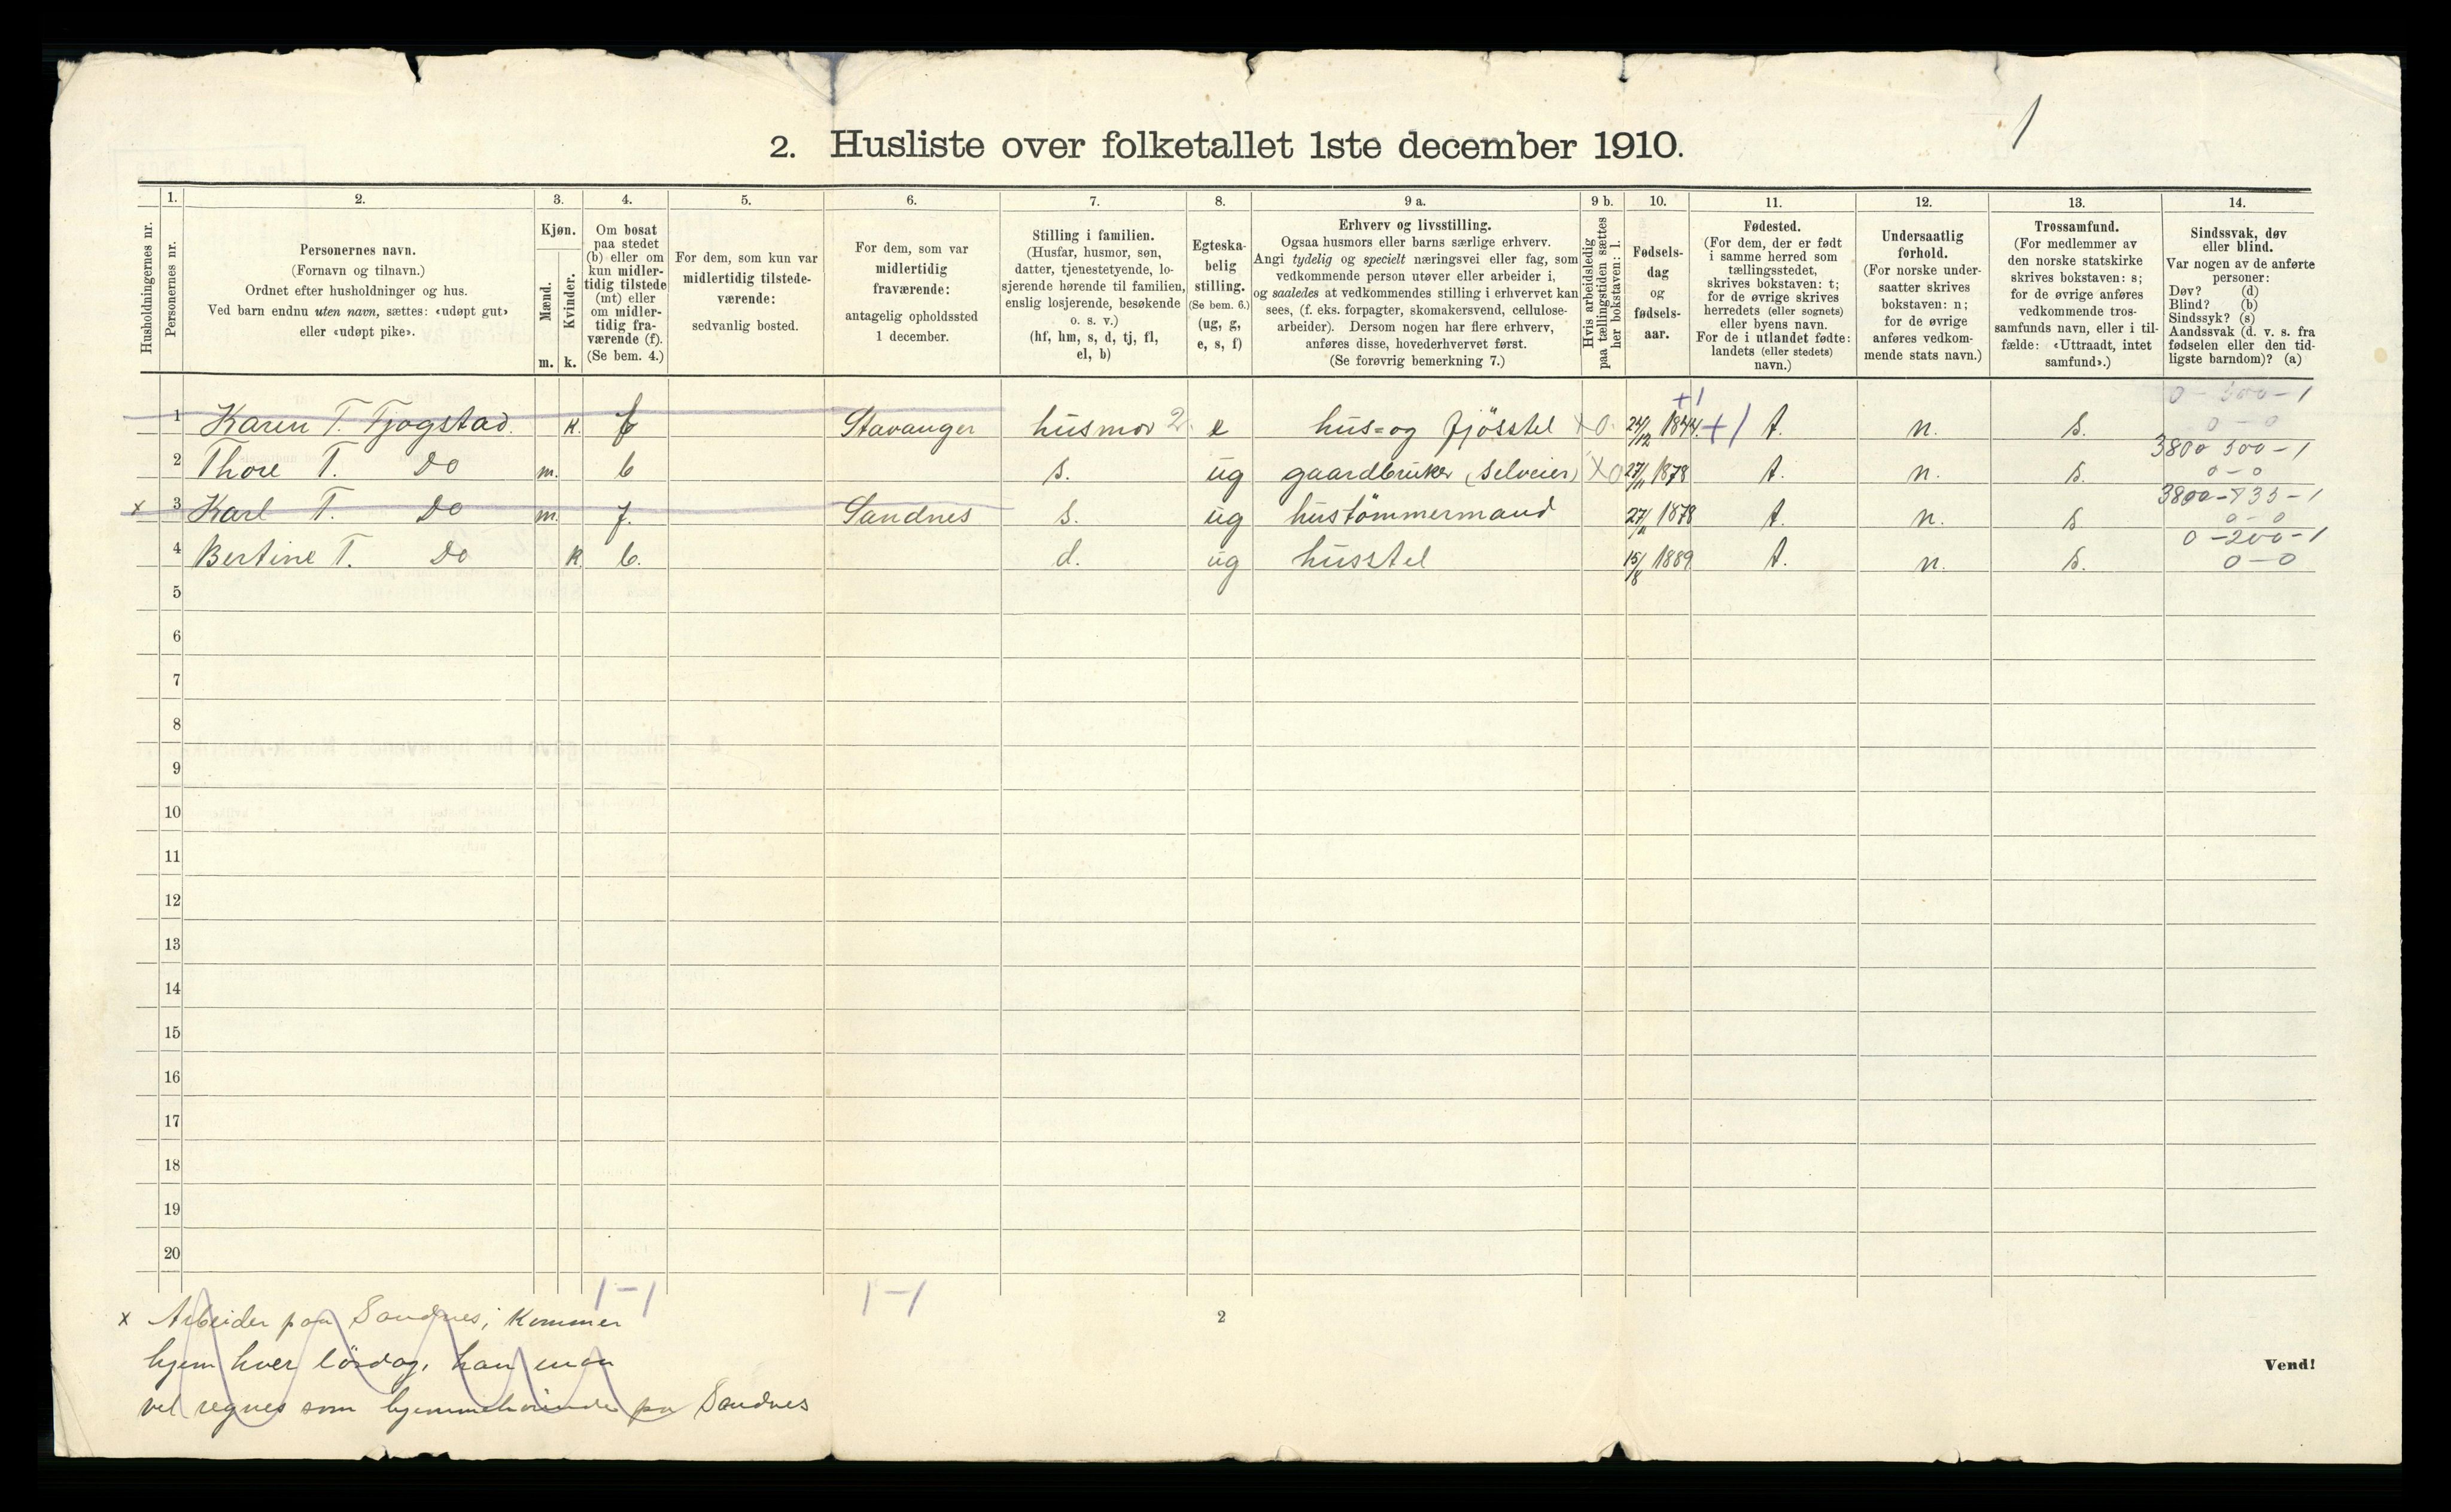 1
2. Husliste over folketallet 1ste december 1910.
Husholdningernes nr.
1. Personernes nr.
2. Personernes navn.
(Fornavn og tilnavn.)
Ordnet efter husholdninger og hus.
Ved barn endnu uten navn, sættes: «udøpt gut»
eller «udøpt pike».
3. Kjøn.
Mænd. m.
Kvinder. k.
4. Om bosat
paa stedet
(b) eller om
kun midler-
tidig tilstede
(mt) eller
om midler-
tidig fra-
værende (f).
(Se bem. 4.)
5. For dem, som kun var
midlertidig tilstede-
værende:
sedvanlig bosted.
6. For dem, som var
midlertidig
fraværende:
antagelig opholdssted
1 december.
7. Stilling i familien.
(Husfar, husmor, søn,
datter, tjenestetyende, lo-
sjerende hørende til familien,
enslig losjerende, besøkende
o. s. v.)
(hf, hm, s, d, tj, fl,
el, b)
8. Egteska-
belig
stilling.
(Se bem. 6.)
(ug, g,
e, s, f)
9 a. Erhverv og livsstilling.
Ogsaa husmors eller barns særlige erhverv.
Angi tydelig og specielt næringsvei eller fag, som
vedkommende person utøver eller arbeider i,
og saaledes at vedkommendes stilling i erhvervet kan
sees, (f. eks. forpagter, skomakersvend, cellulose-
arbeider). Dersom nogen har flere erhverv,
anføres disse, hovederhvervet først.
(Se forøvrig bemerkning 7.)
9 b. Hvis arbeidsledig
paa tællingstiden sættes
her bokstaven: l.
10. Fødsels-
dag
og
fødsels-
aar.
11. Fødested.
(For dem, der er født
i samme herred som
tællingsstedet,
skrives bokstaven: t;
for de øvrige skrives
herredets (eller sognets)
eller byens navn.
For de i utlandet fødte:
landets (eller stedets)
navn.)
12. Undersaatlig
forhold.
(For norske under-
saatter skrives
bokstaven: n;
for de øvrige
anføres vedkom-
mende stats navn.)
13. Trossamfund.
(For medlemmer av
den norske statskirke
skrives bokstaven: s;
for de øvrige anføres
vedkommende tros-
samfunds navn, eller i til-
fælde: «Uttraadt, intet
samfund».)
14. Sindssvak, døv
eller blind.
Var nogen av de anførte
personer:
Døv? (d)
Blind? (b)
Sindssyk? (s)
Aandssvak (d. v. s. fra
fødselen eller den tid-
ligste barndom)? (a)
0 - 300 - 1
+1
1 Karen T. Tjogstad. k. f Stavanger husmor 2. e hus= og fjösstel X 0. 24/12 1844. +1 t. n. s. 0 - 0
3800 300 - 1
2 Thore T. Do m. b s. ug gaardbruker (selveier) X 0 27/11 1878 t. n. s. 0 - 0
3800 - 733 - 1
x 3 Karl T. Do m. f. Sandnes s. ug hustömmermand 27/11 1878 t. n. s 0 - 0
0 - 200 - 1
4 Bertine T. Do k b. d. ug husstel 15/8 1889. t. n. s. 0 - 0
5
6
7
8
9
10
11
12
13
14
15
16
17
18
19
20
1 - 1 1 - 1
x Arbeider paa Sandnes; kommer
hjem hver lördag, han maa
vel regnes som hjemmehörende paa Sandnes
2
Vend!